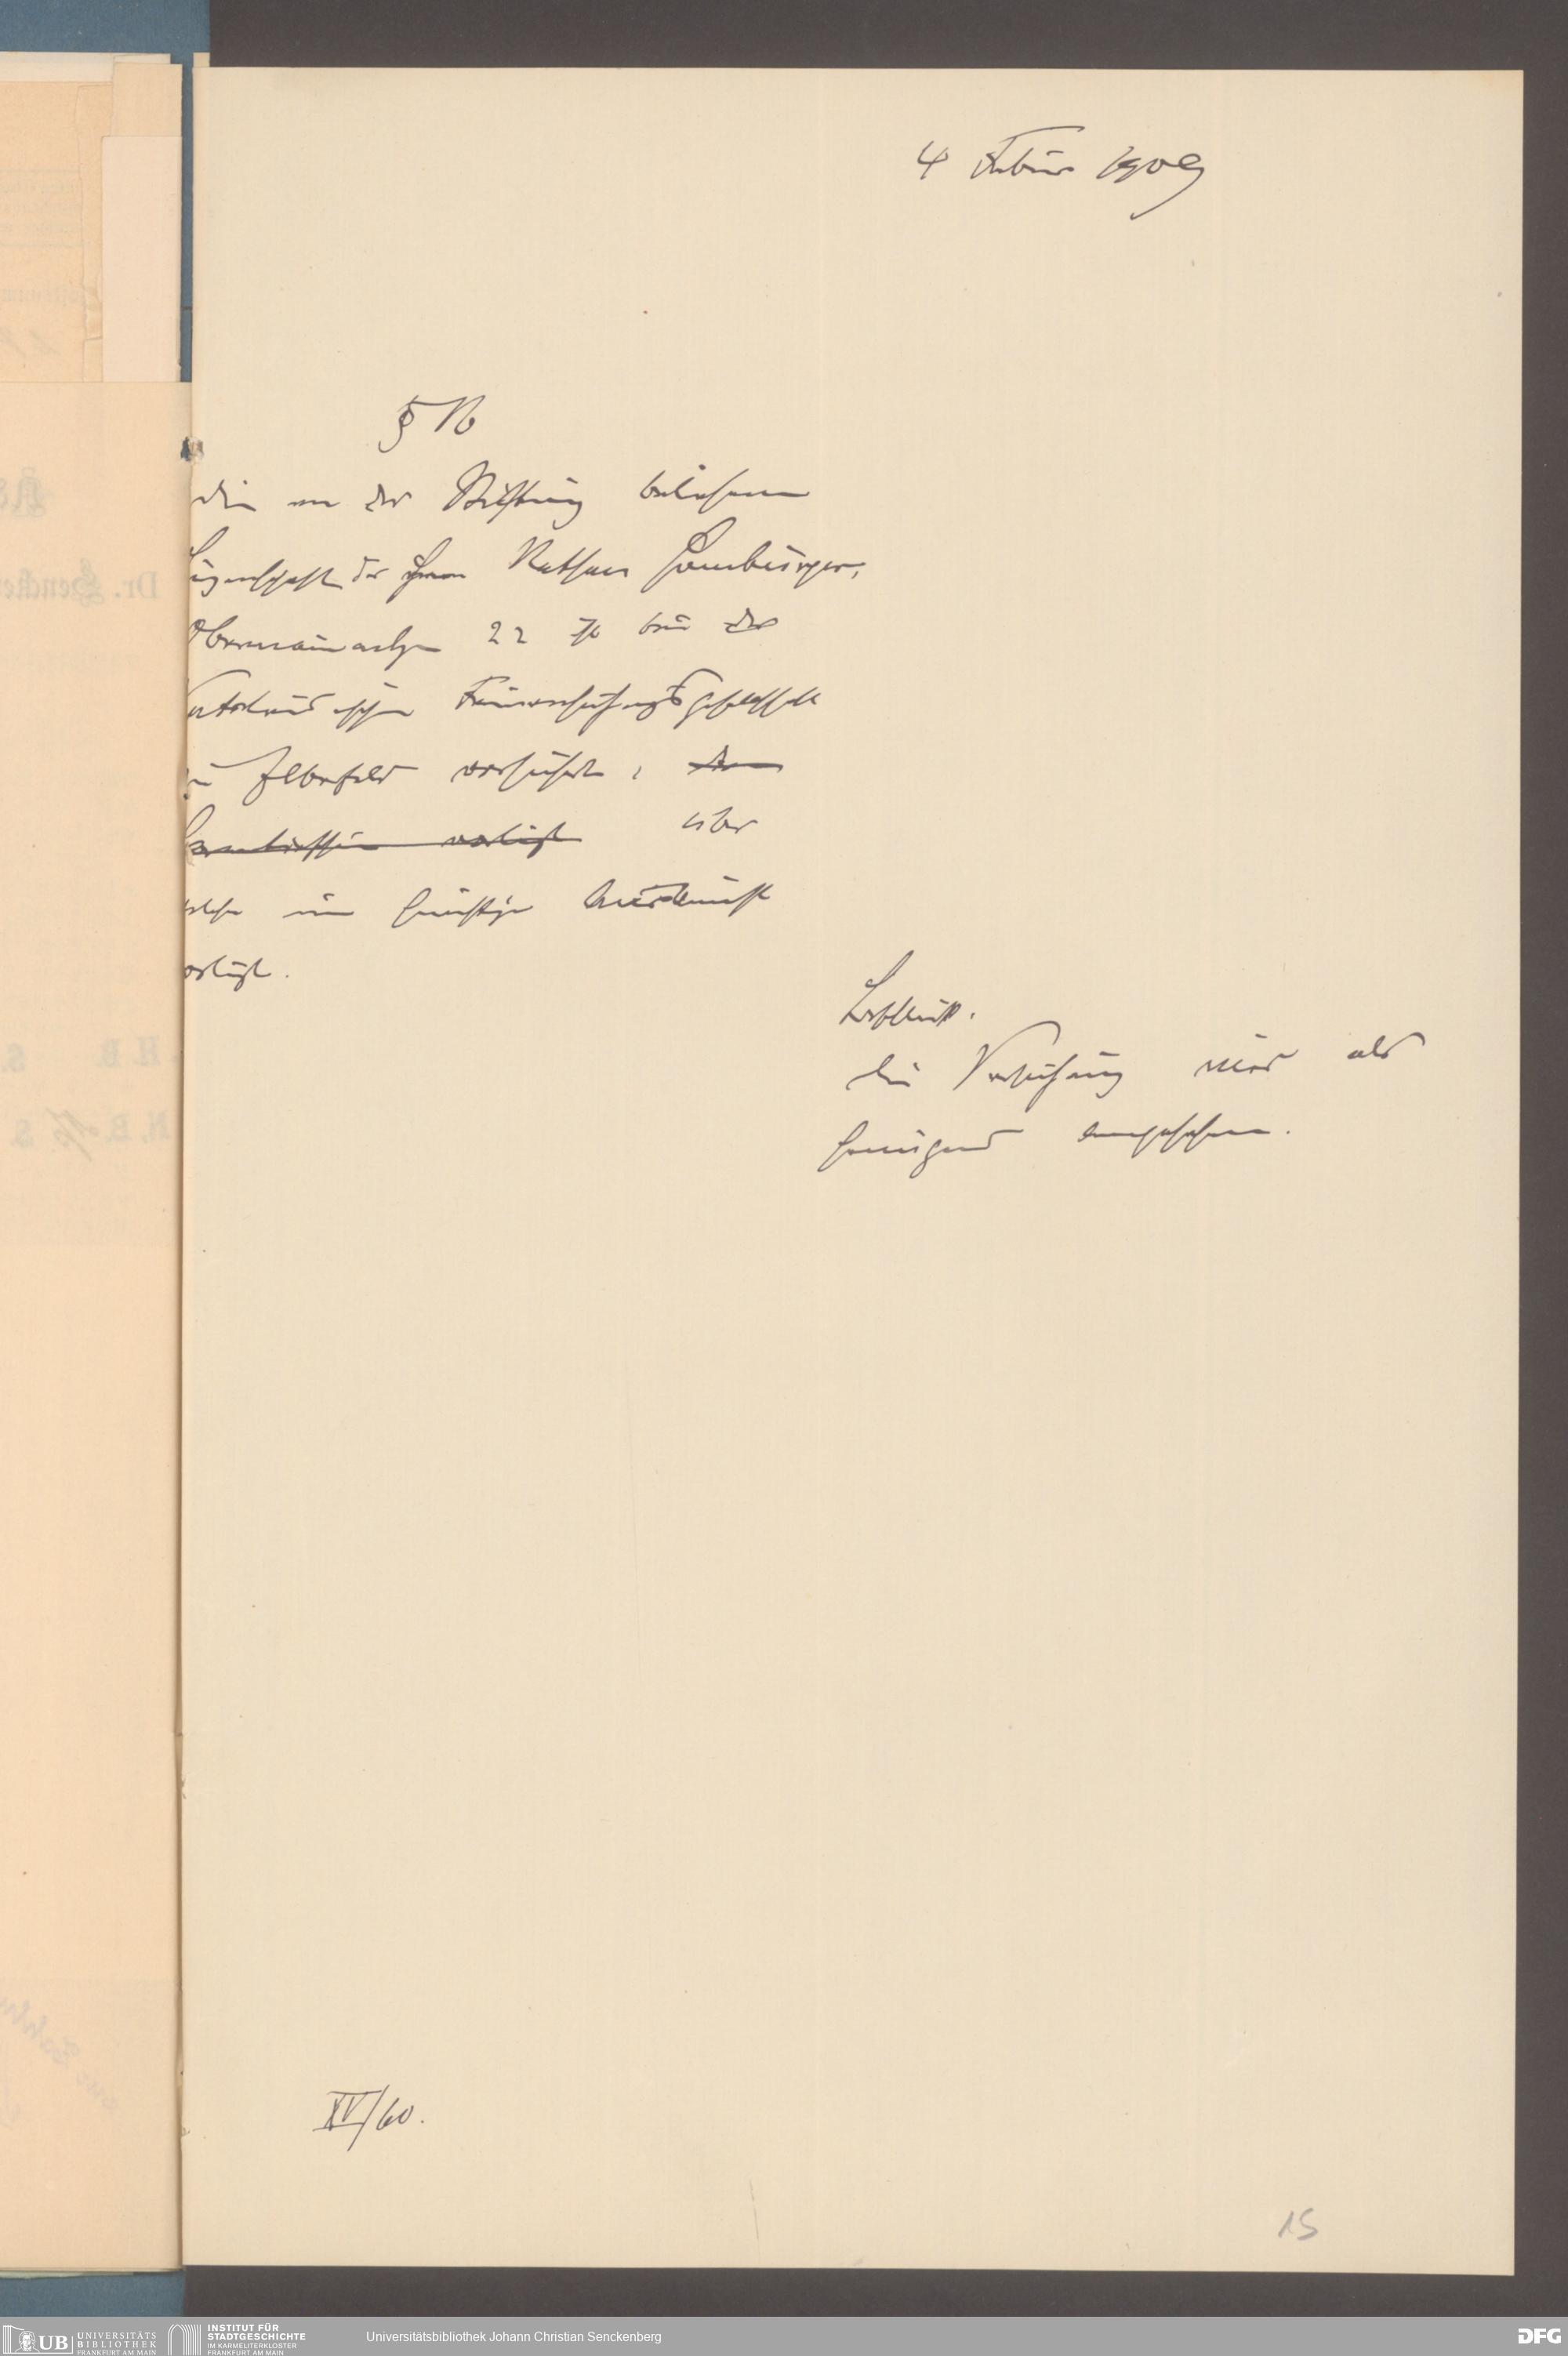 4 Febr 1909
§ 16
Die von der Stiftung beliehene
Liegenschaft des Herrn Nathan Hamburger,
Obermainanlage 22 ist bei der
Vaterländischen Feuerversicherungsgesellschaft
in Elberfeld versichert,
über
welche eine günstige Auskunft
vorliegt.
Beschluß.
Die Versicherung wird als
genügend angesehen.
XV/60.
15
Dr. Hendler
H. B. S.
N. B. S.
UB UNIVERSITÄTS
BIBLIOTHEK
FRANKFURT AM MAIN
INSTITUT FÜR
STADTGESCHICHTE
IM KARMELITERKLOSTER
FRANKFURT AM MAIN
Universitätsbibliothek Johann Christian Senckenberg
DFG